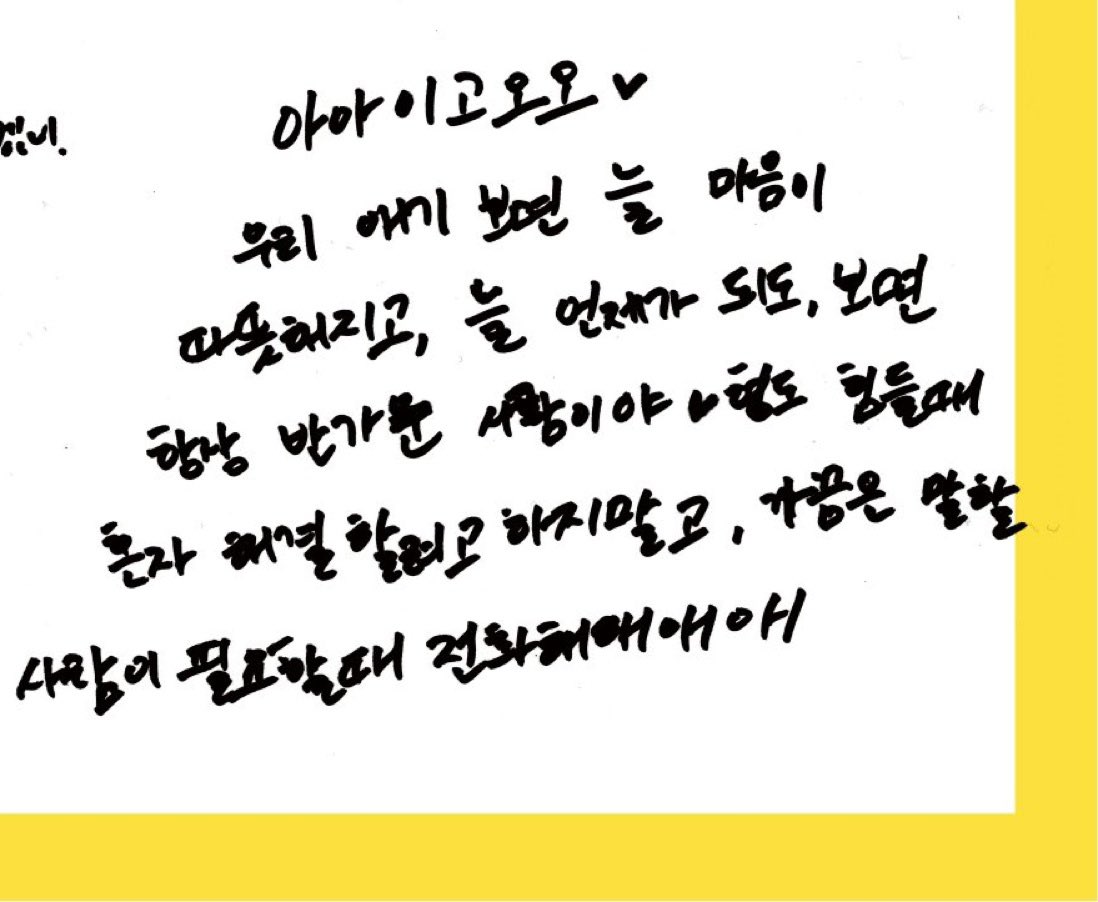 아아이고오오♥
우리 애기 보면 늘 마음이
따뜻해지고, 늘 언제가 되도, 보면
항상 반가운 사람이야♥형도 힘들때
혼자 해결할려고 하지말고, 가끔은 말할
사람이 필요할때 전화해애애애